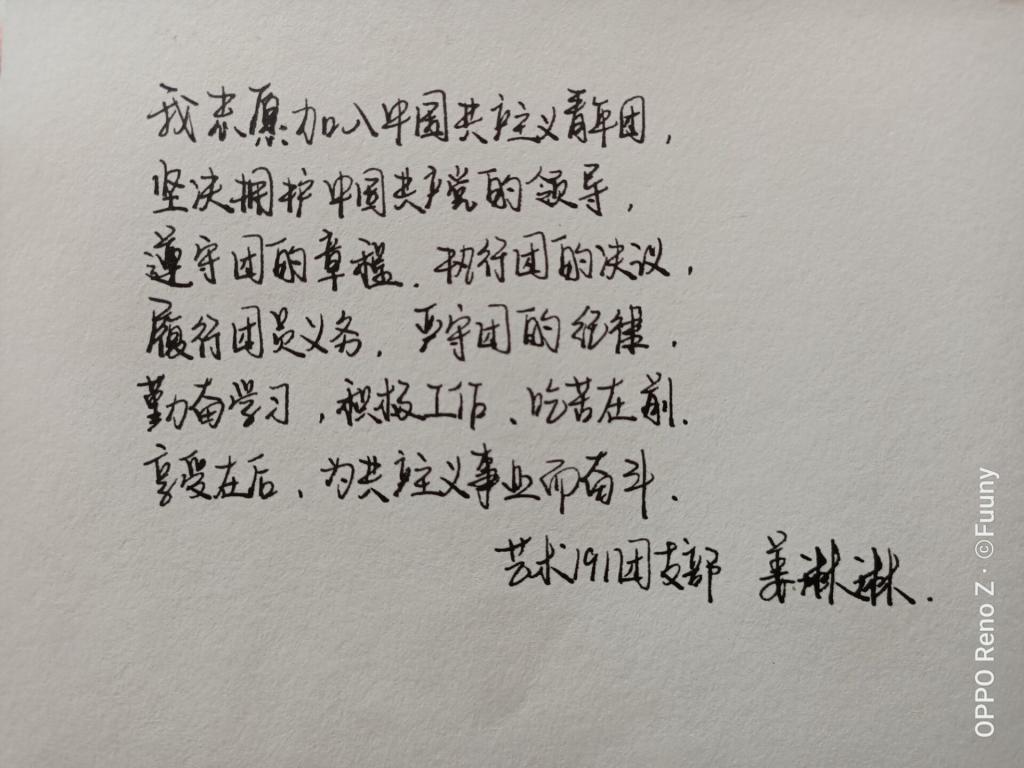 我志愿加入中国共产主义青年团，
坚决拥护中国共产党的领导，
遵守团的章程、执行团的决议，
履行团员义务，严守团的纪律，
勤奋学习，积极工作、吃苦在前、
享受在后、为共产主义事业而奋斗.
艺术191团支部 姜淋淋.
OPPO Reno Z · ©Fuuny